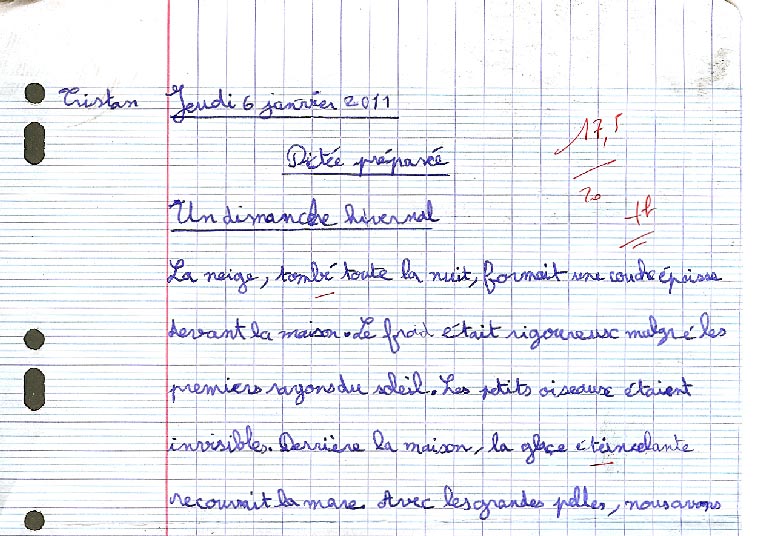 Tristan Jeudi 6 janvier 2011
17,5
Dictée préparée
20
Un dimanche hivernal
tb
La neige, tombé toute la nuit, formait une couche épaisse
devant la maison. Le froid était rigoureux malgré les
premiers rayons du soleil. Les petits oiseaux étaient
invisibles. Derrière la maison, la glace éteincelante
recouvrait la mare. Avec les grandes pelles, nous avons